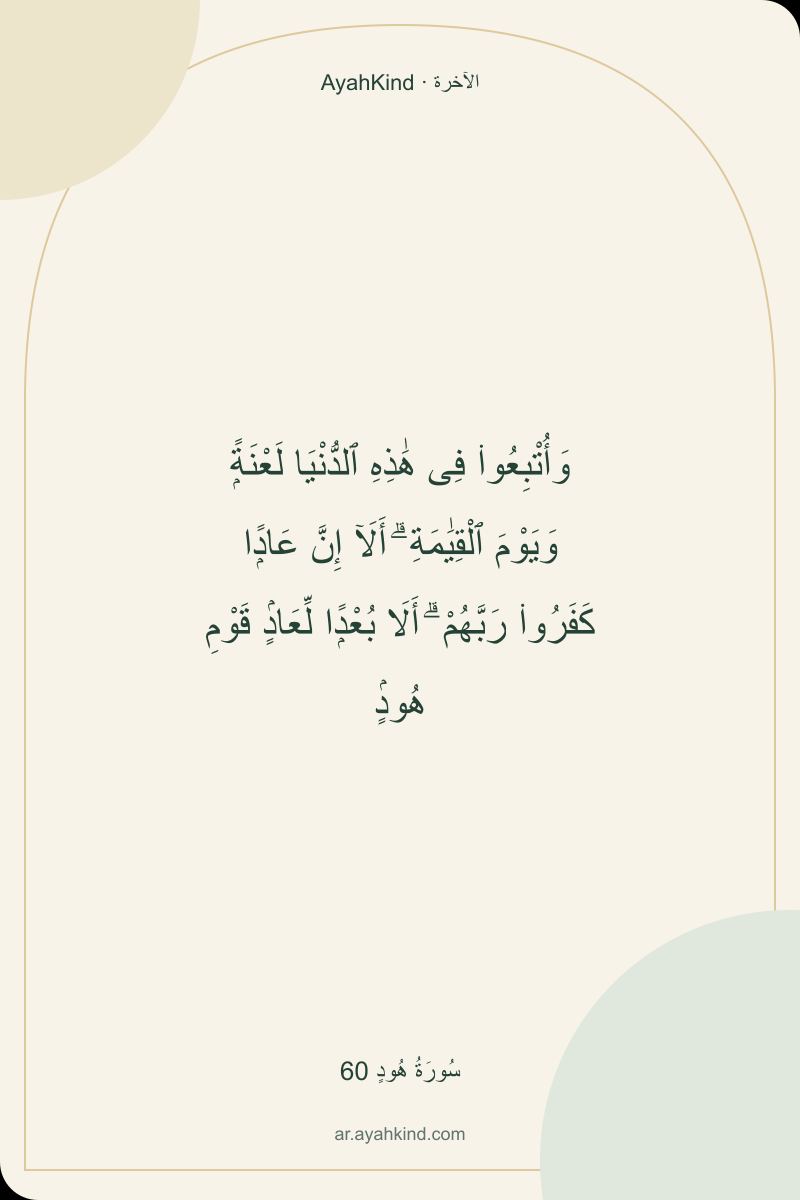 AyahKind · الآخرة
وَأُتْبِعُوا۟ فِى هَٰذِهِ ٱلدُّنْيَا لَعْنَةًۭ
وَيَوْمَ ٱلْقِيَٰمَةِ ۗ أَلَآ إِنَّ عَادًۭا
كَفَرُوا۟ رَبَّهُمْ ۗ أَلَا بُعْدًۭا لِّعَادٍۢ قَوْمِ
هُودٍۢ
سُورَةُ هُودٍ 60
ar.ayahkind.com